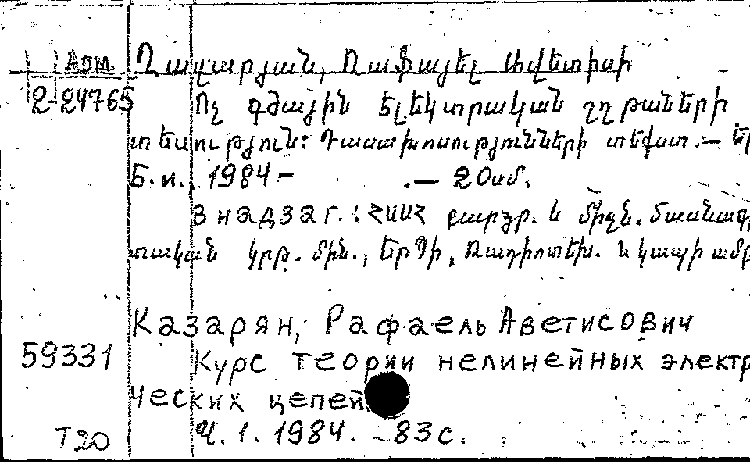 Арм. Ղազարյան, Ռաֆայել Ավետիսի
2-24765 Ոչ գծային էլեկտրական շղթաների
տեսություն: Դասախոսությունների տեքստ.— Եր
Б.и., 1984— .— 20սմ.
В надзаг.: ՀՍՍՀ բարձր. և միջն. մասնագ
տական կրթ. մին., ԵրՊԻ, Ռադիոտեխ. և կապի ամբ
Казарян, Рафаель Аветисович
59331 Курс теории нелинейных электр
ческих цепей
Ч.1. 1984. -83с.
Т20